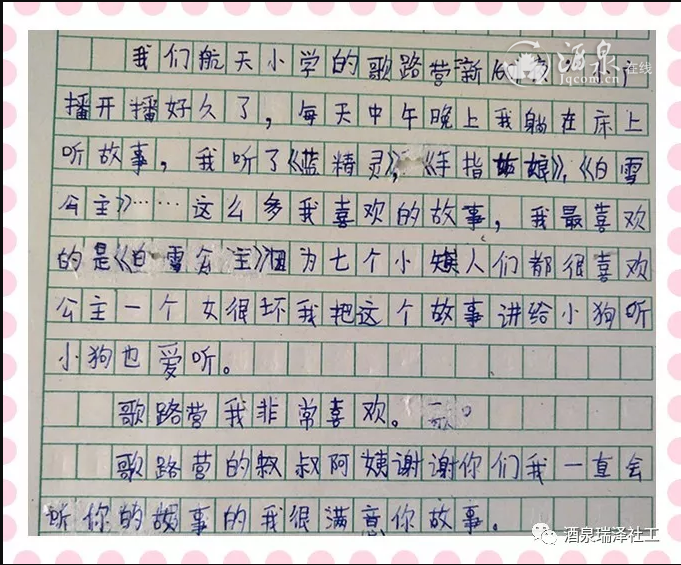 我们航天小学的歌路营新
酒泉
在线
Jqcom.cn
播开播好久了，每天中午晚上我躺在床上
听故事，我听了《蓝精灵》，《手指姑娘》，《白雪
公主》……这么多我喜欢的故事，我最喜欢
的是《白雪公主》因为七个小矮人们都很喜欢
公主一个女很坏我把这个故事讲给小狗听
小狗也爱听。
歌路营我非常喜欢。
歌路营的叔叔阿姨谢谢你们我一直会
听你的故事的我很满意你故事。
酒泉瑞泽社工